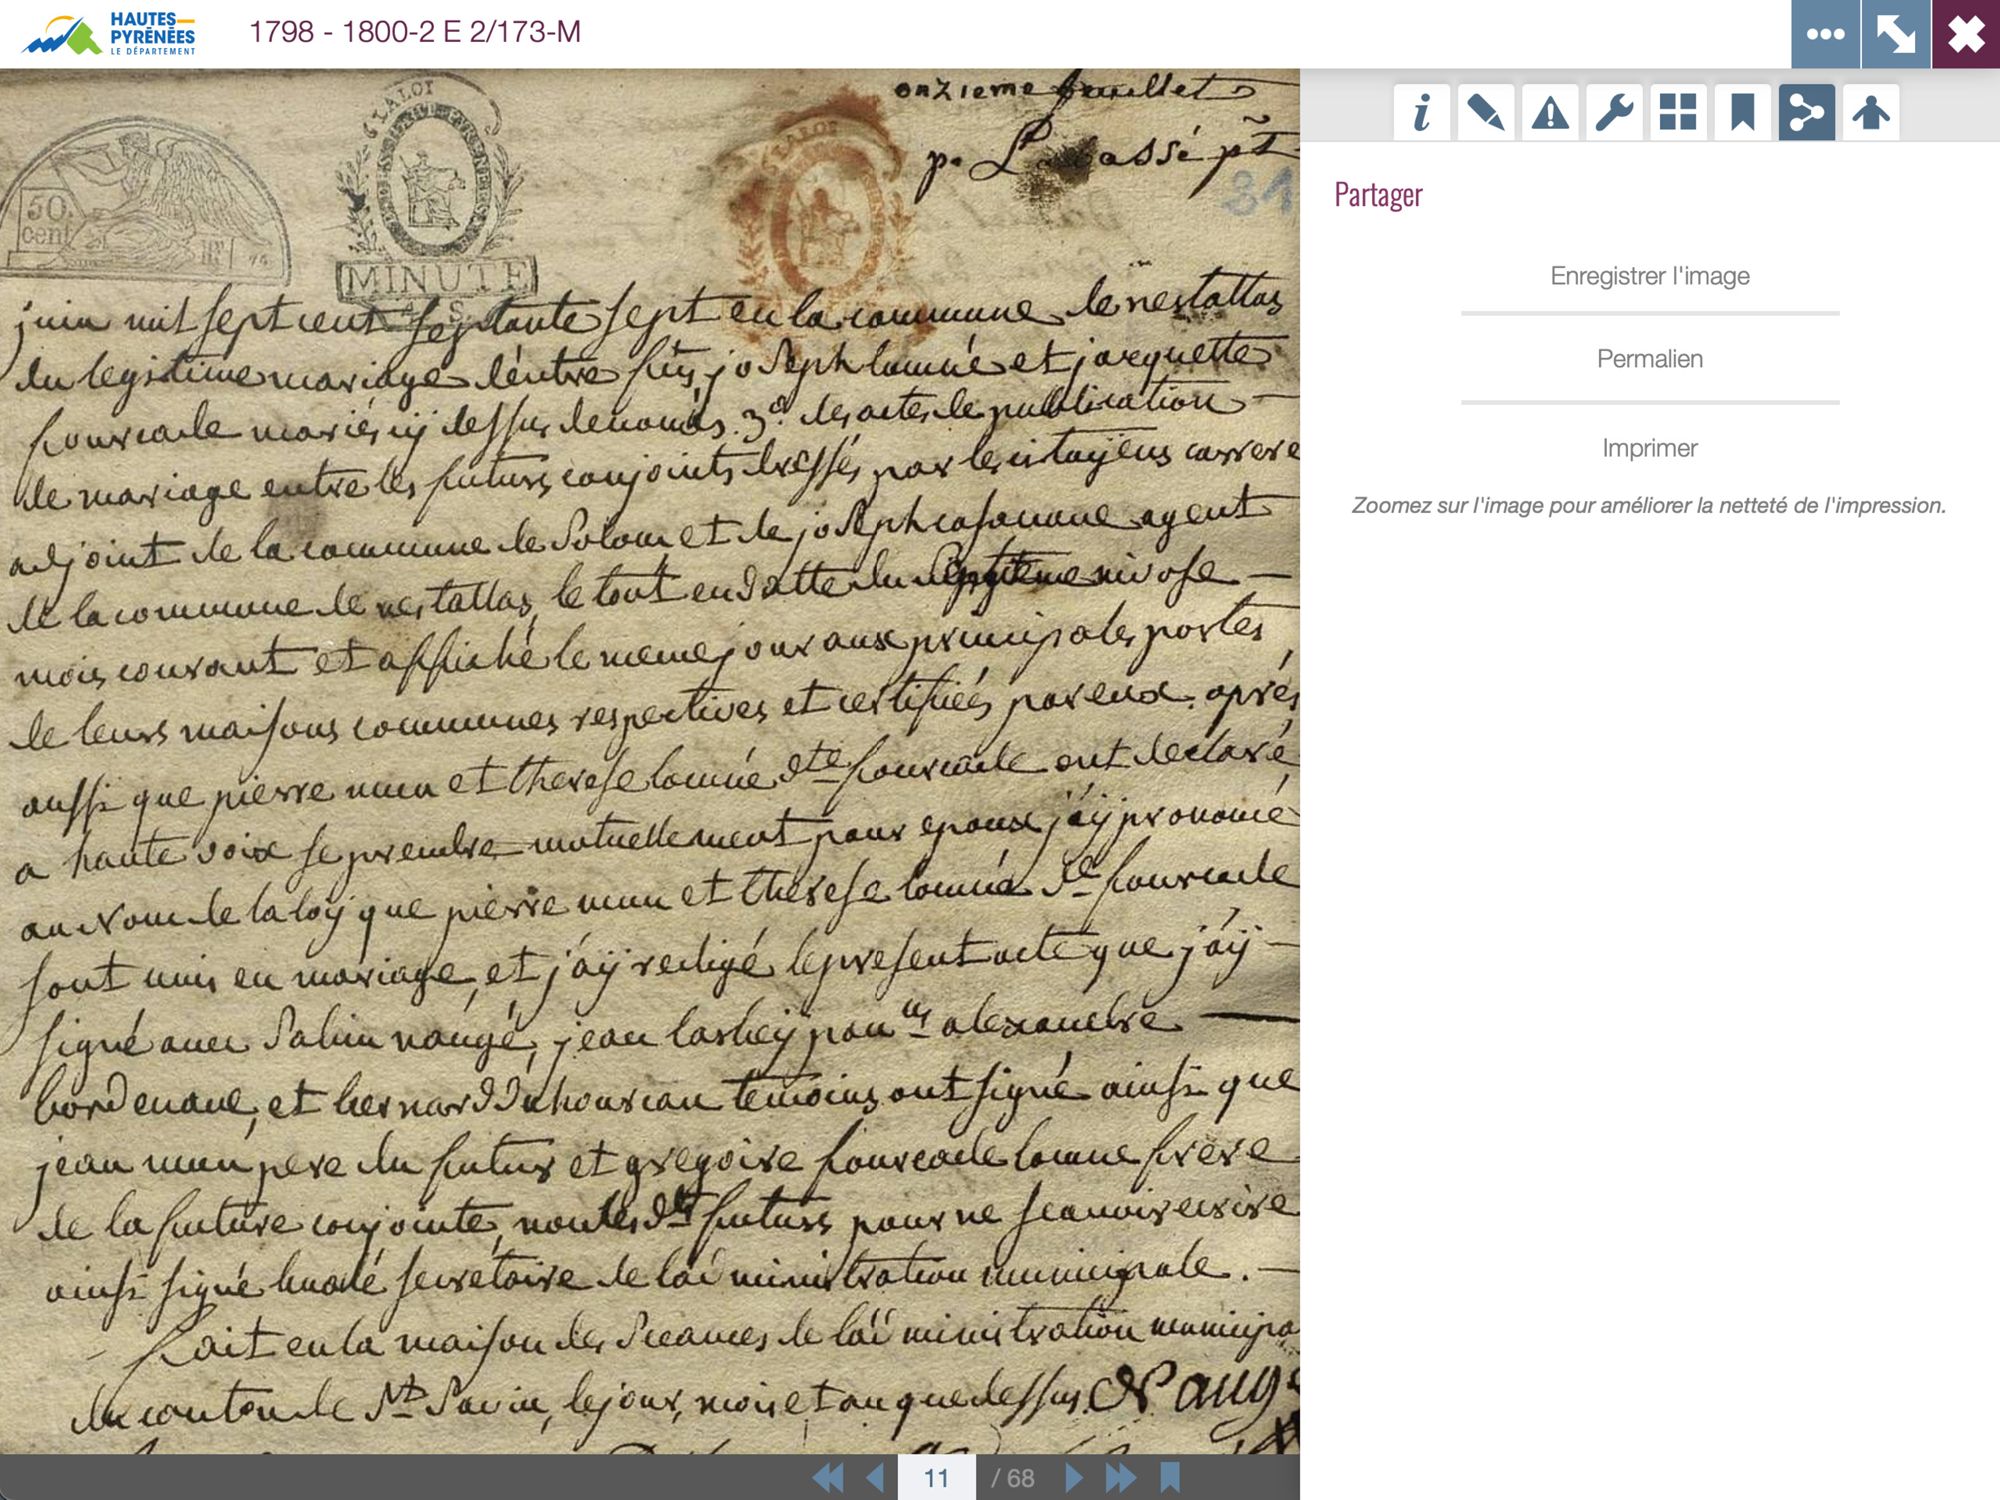 HAUTES-
PYRÉNÉES
LE DÉPARTEMENT
1798 - 1800-2 E 2/173-M
onzieme feuillet
LALOI
50
cent
MINUTE
LALOI
31
juin mil sept cent septante sept en la commune de nestallas
du legitime mariage dèntre fûs joseph lamée et jacquette
fourcade mariés cÿ dessus denomés. 3º. des actes de publication
de mariage entre les futurs conjoints dressés par les citaÿens carrere
adjoint de la commune de Solom et de joseph casanave agent
de la commune de nestallas, le tout en datte du septieme nivose
mois courant et affiché le meme jour aux principales portes
de leurs maisons communes respectives et certifiées par eux. aprés
aussi que pierre mun et therese lamée dte fourcade ont declaré
a haute voix se prendre mutuellement pour epoux j'áÿ prononcé
au Nom de la loÿ que pierre mun et therese lamée dte fourcade
sont unis en mariage, et j'áÿ redigé le present acte que j'áÿ
signé avec Sabin naugé, jean alexandre
bordenave, et bernard Duhourcau temoins ont signé ainsi que
jean mun pere du futur et gregoire fourcade lamée frere
de la future conjointe, non lesdts futurs pour ne scavoir ecrire
ainsi signé secrétaire de laďministration municipale.
fait en la maison des Sceances de laďministration municipa
du canton de St Savin, le jour, mois et an que dessus. Naugé
11 / 68
Partager
Enregistrer l'image
Permalien
Imprimer
Zoomez sur l'image pour améliorer la netteté de l'impression.